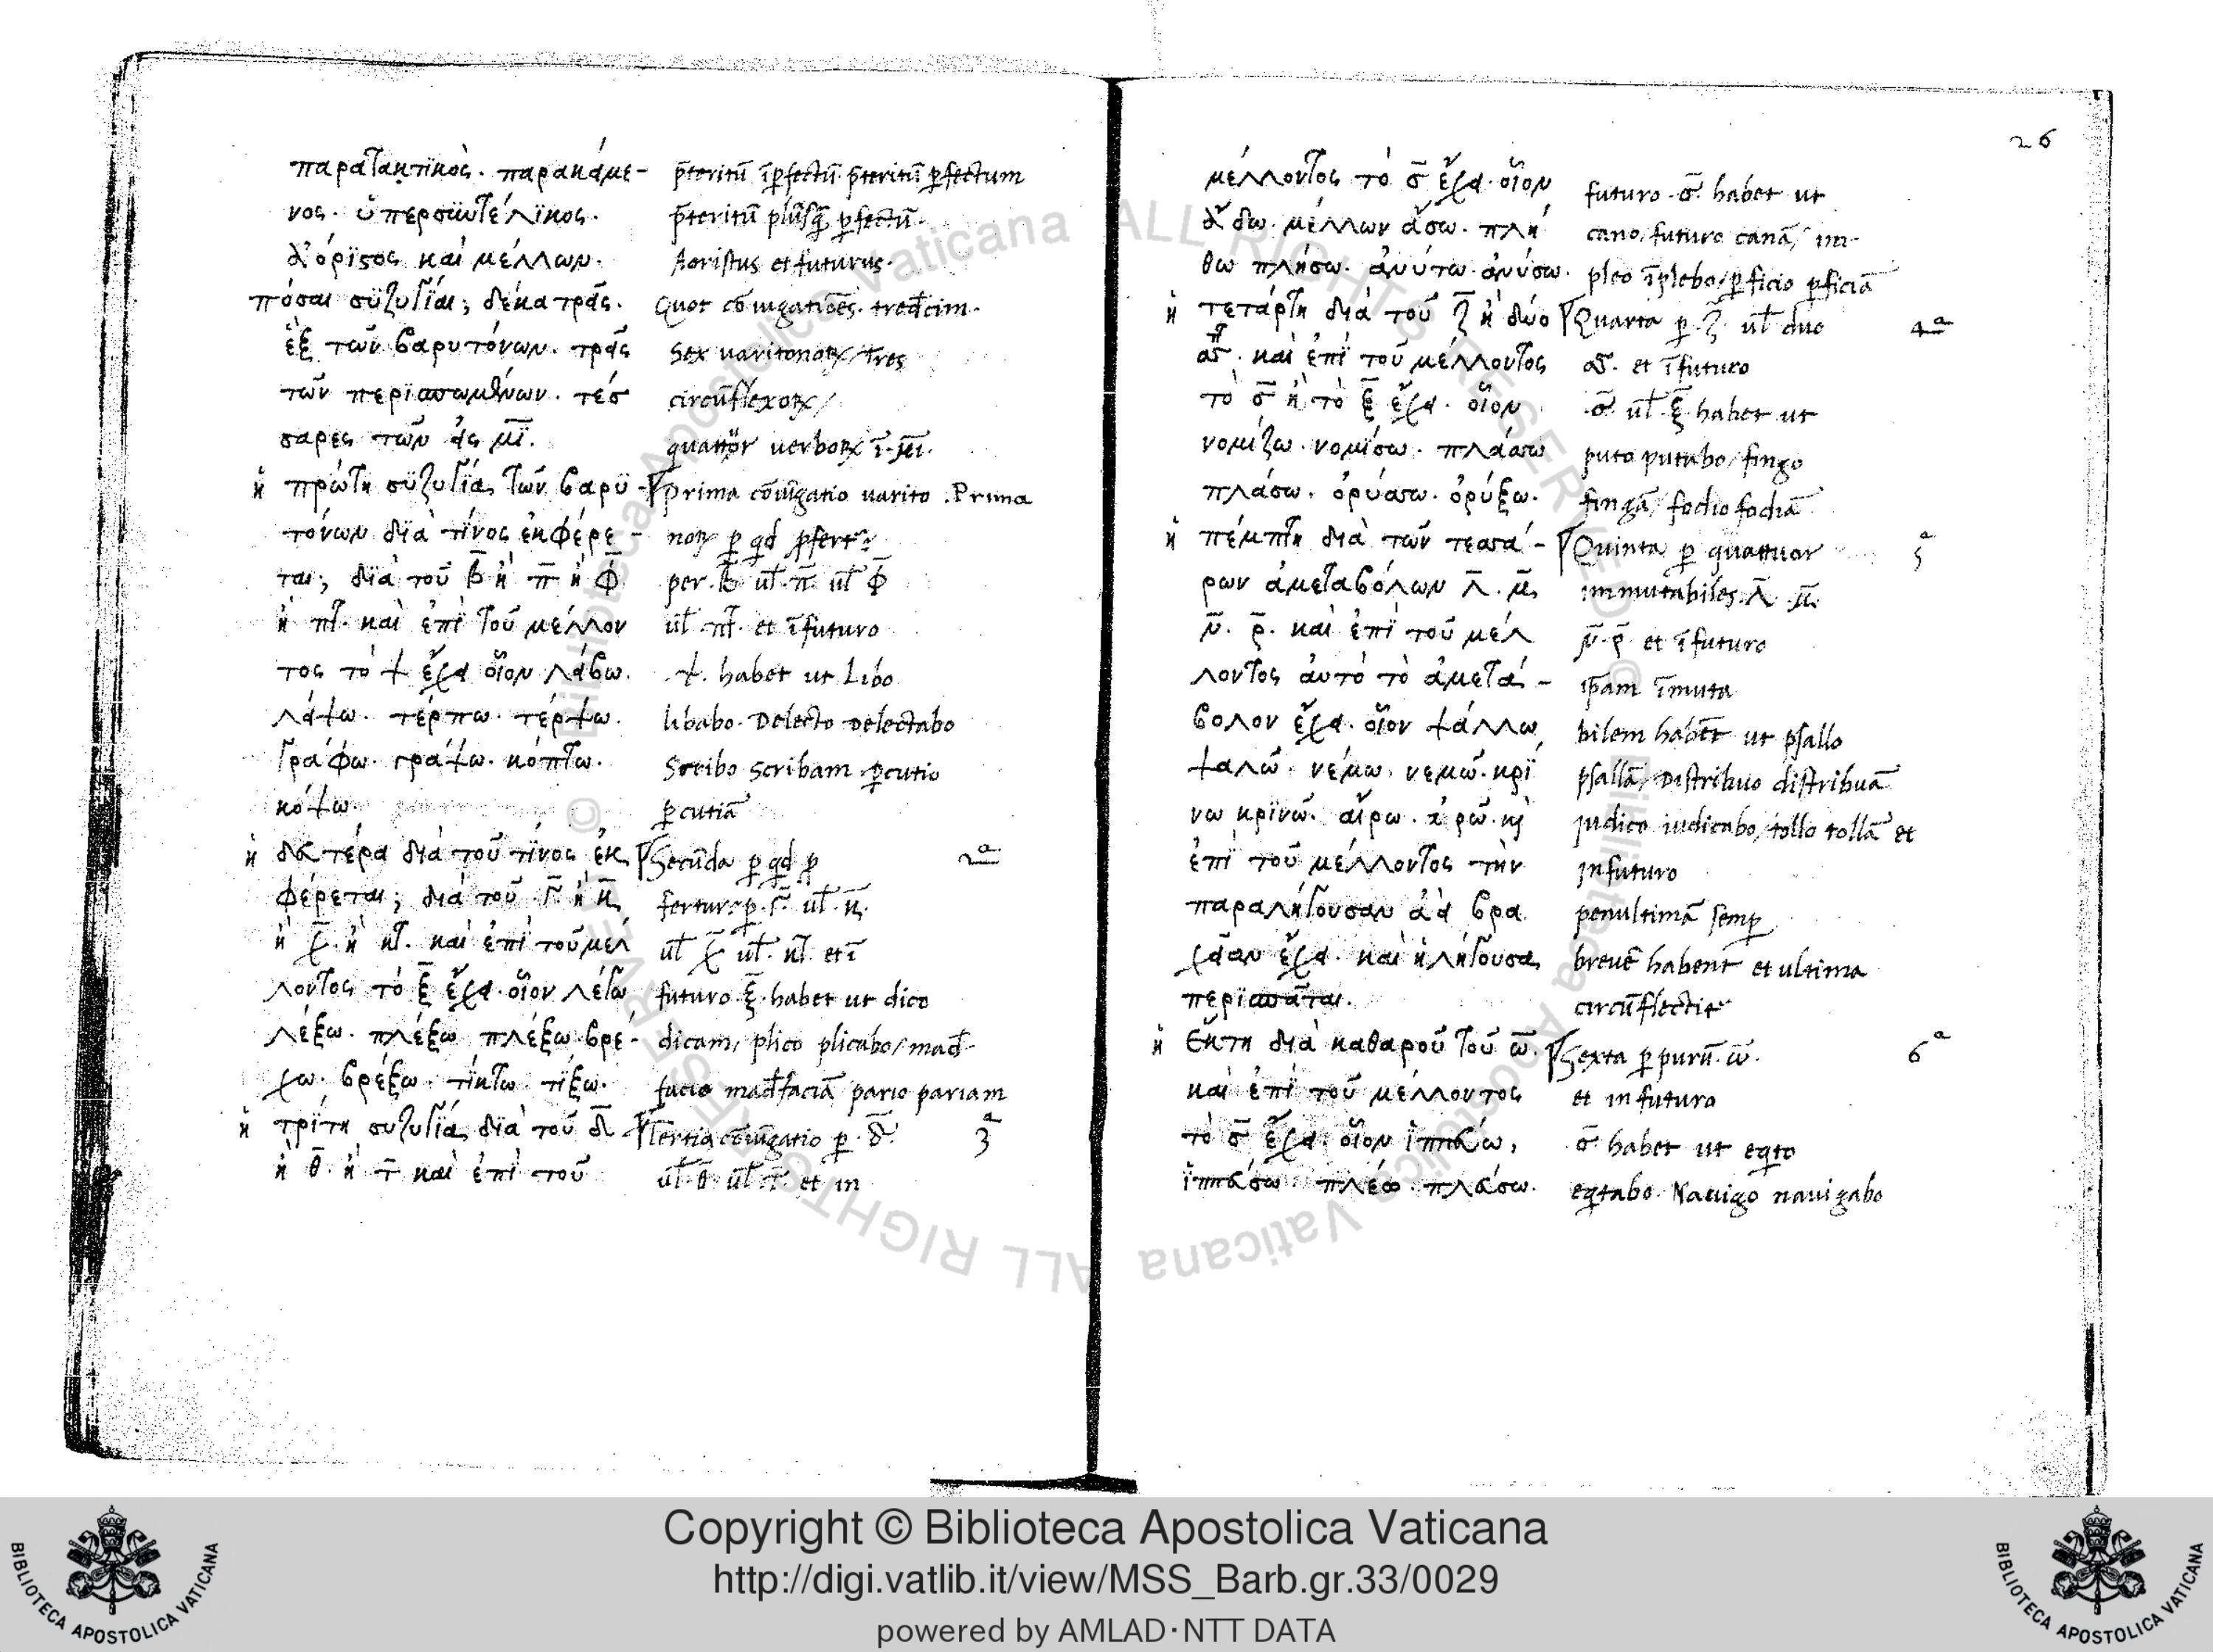 παρατακτϊκὸς. παρακείμε-
νος. ὑπερσϋντέλϊκος.
ἀόρϊστος καὶ μέλλων.
πόσαι σϋζυγΐαι; δέκα τρεῖς.
ἓξ τῶν βαρυτόνων. τρεῖς
τῶν περϊσπωμένων. τέσ
σαρες τῶν εἰς μϊ.
ἡ πρώτη σϋζυγία τῶν βαρϋ-
τόνων δϊὰ τίνος ἐκφέρε-
ται; δϊὰ τοῦ β̅ ἢ π̅ ἢ φ̅
ἢ πτ. καὶ ἐπὶ τοῦ μέλλον
τος τὸ ψ ἔχει οἷον λείβω.
λείψω. τέρπω. τέρψω.
γράφω. γράψω. κόπτω.
κόψω.
ἡ δευτέρα διὰ τοῦ τίνος ἐκ
φέρεται; διὰ τοῦ γ̅ ἢ κ̅
ἢ χ̅. ἢ κτ. καὶ ἐπὶ τοῦ μέλ
λοντος τὸ ξ̅ ἔχει οἷον λέγω
λέξω. πλέξω πλέξω βρέ-
χω. βρέξω. τίκτω. τίξω.
ἡ τρίτη συζυγία διὰ τοῦ δ̅
ἢ θ̅. ἢ τ̅ καὶ ἐπὶ τοῦ
p̄teritū īp̱fectū p̄teritū p̱fectum
p̄teritū plusq̄ p̱fectū.
Aoristus et futurus.
Quot cōiugatiōes. tredecim.
Sex uaritonoꝝ/ tres
circūflexoꝝ/
quattuor uerboꝝ ī. μι.
Prima cōiugatio uarito . Prima
noꝝ ꝑ qd ꝓfertᷣ
per. β̅ ul̄. π̅ ul̄ φ̅
ul̄ πτ. et ī futuro
ψ. habet ut Libo
libabo. Delecto Delectabo
Scribo Scribam ꝑcutio
ꝑcutiā
Secūda ꝑ qd ꝓ 2ᵃ
fertur. ꝑ. γ̅ ul̄. κ̅.
ul̄ χ̅ ul̄. κτ̄ et ī
futuro ξ̅. habet ut dico
dicam, plico plicabo/ mad̄-
facio mad̄faciā pario pariam
Tertia cōiugatio ꝑ. δ̅. 3ᵃ
ul̄ θ̅ ul̄ τ̅. et in
26
μέλλοντος τὸ σ̅ ἔχει. οἷον
ἄδω. μέλλων ἄσω. πλή
θω πλήσω. ἀνύτω. ἀνύσω.
ἡ τετάρτη διὰ τοῦ ζ̅ ἢ δύο
σσ. καὶ ἐπὶ τοῦ μέλλοντος
τὸ σ̅ ἢ τὸ ξ̅ ἔχει. οἷον
νομίζω. νομίσω. πλάσσω
πλάσω. ὀρύσσω. ὀρύξω.
ἡ πέμπτη διὰ τῶν τεσσά-
ρων ἀμεταβόλων λ̅. μ̅.
ν̅. ρ̅. καὶ ἐπὶ τοῦ μέλ
λοντος αὐτὸ τὸ ἀμετά-
βολον ἔχει. οἷον ψάλλω
ψαλῶ. νέμω. νεμῶ. κρί
νω κρινῶ. αἴρω. ἀρῶ. καὶ
ἐπὶ τοῦ μέλλοντος τὴν
παραλήγουσαν ἀεὶ βρα
χεῖαν ἔχει. καὶ ἡ λήγουσα
περϊσπᾶται.
ἡ ἕκτη διὰ καθαροῦ τοῦ ω̅.
καὶ ἐπὶ τοῦ μέλλοντος
τὸ σ̅ ἔχει. οἷον ἱππεύω,
ἱππεύσω πλέω. πλεύσω.
futuro. σ̅. habet ut
cano/ futuro canā/ im-
pleo īplebo/ ꝑficio ꝑficiā
Quarta ꝑ. ζ̅. ul̄ duo 4ᵃ
σσ. et ī futuro
σ̅ ul̄. ξ̅. habet ut
puto putabo/ fingo
fingā/ fodio fodiā
Quinta ꝑ quattuor 5ᵃ
immutabiles. λ̅. μ̅.
ν̅. ρ̅ et ī futuro
ip̄am īmuta
bilem habēt ut psallo
psallā/ Distribuo distribuā
judico iudicabo/ tollo tollā et
in futuro
penultimā semꝑ
breuē habent et ultima
circūflectitᷣ
Sexta ꝑ purū. ω̅. 6ᵃ
et in futuro
σ̅ habet ut eqto
eqtabo. Nauigo nauigabo
© Biblioteca Apostolica Vaticana ALL RIGHTS RESERVED
Copyright © Biblioteca Apostolica Vaticana
http://digi.vatlib.it/view/MSS_Barb.gr.33/0029
powered by AMLAD·NTT DATA
BIBLIOTECA APOSTOLICA VATICANA
BIBLIOTECA APOSTOLICA VATICANA